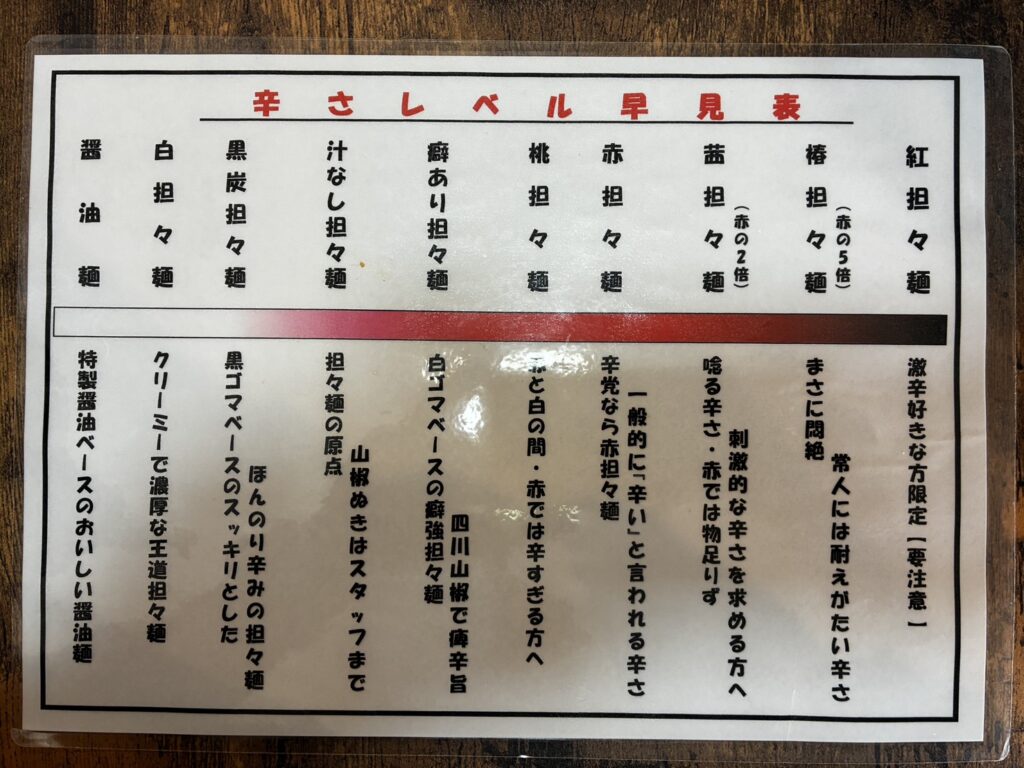 辛さレベル早見表
紅担々麺
椿担々麺
（赤の5倍）
茜担々麺
（赤の2倍）
赤担々麺
桃担々麺
癖あり担々麺
汁なし担々麺
黒炭担々麺
白担々麺
醤油麺
激辛好きな方限定【要注意】
常人には耐えがたい辛さ
まさに悶絶
刺激的な辛さを求める方へ
唸る辛さ・赤では物足りず
一般的に「辛い」と言われる辛さ
辛党なら赤担々麺
赤と白の間・赤では辛すぎる方へ
四川山椒で痺辛旨
白ゴマベースの癖強担々麺
山椒ぬきはスタッフまで
担々麺の原点
ほんのり辛みの担々麺
黒ゴマベースのスッキリとした
クリーミーで濃厚な王道担々麺
特製醤油ベースのおいしい醤油麺